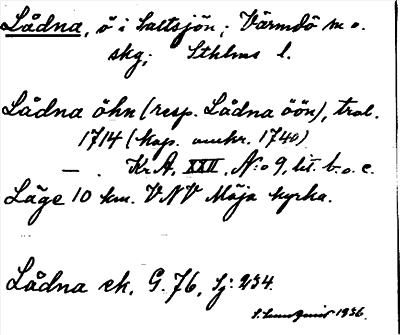 Lådna, ö i Saltsjön; Värmdö m o.
skg; Sthlms l.
Lådna öhn (resp. Lådna öön), trol.
1714 (kop. omkr. 1740)
— . Kr.A, XXII, N:o 9, lit. b. o. c.
Läge 10 km. VNV Möja kyrka.
Lådna ek. G. 76, Sj: 234.
1936.